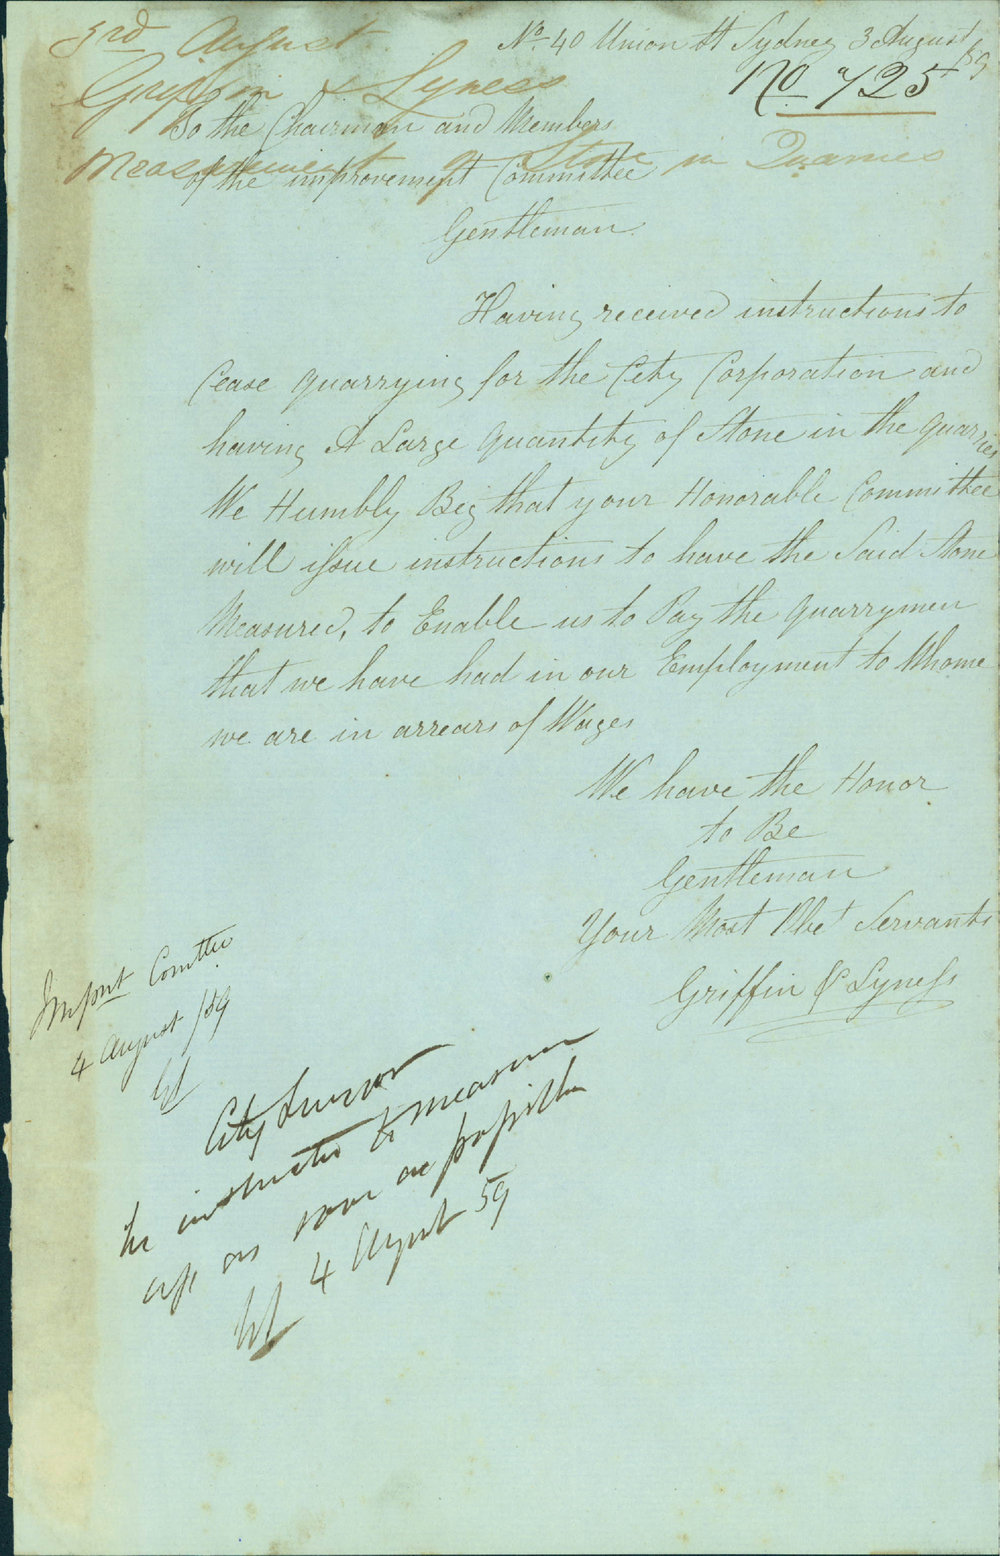 3rd August
Griffin & Lyness
Measurement of Stone in Quarries
No 40 Union St Sydney 3 August /59
No 725
To the Chairman and Members
of the improvement Committee
Gentleman
Having received instructions to
Cease quarrying for the City Corporation and
having A Large quantity of Stone in the quarries
We Humbly Beg that your Honorable Committee
will issue instructions to have the Said Stone
Measured, to Enable us to Pay the quarrymen
that we have had in our Employment to Whome
we are in arrears of Wages
We have the Honor
to Be
Gentleman
Your Most Obet Servants
Griffin & Lyness
Impnt Comttee
4 August /59
City Surveyor
be instructed to measure
up as soon as possible
4 August 59